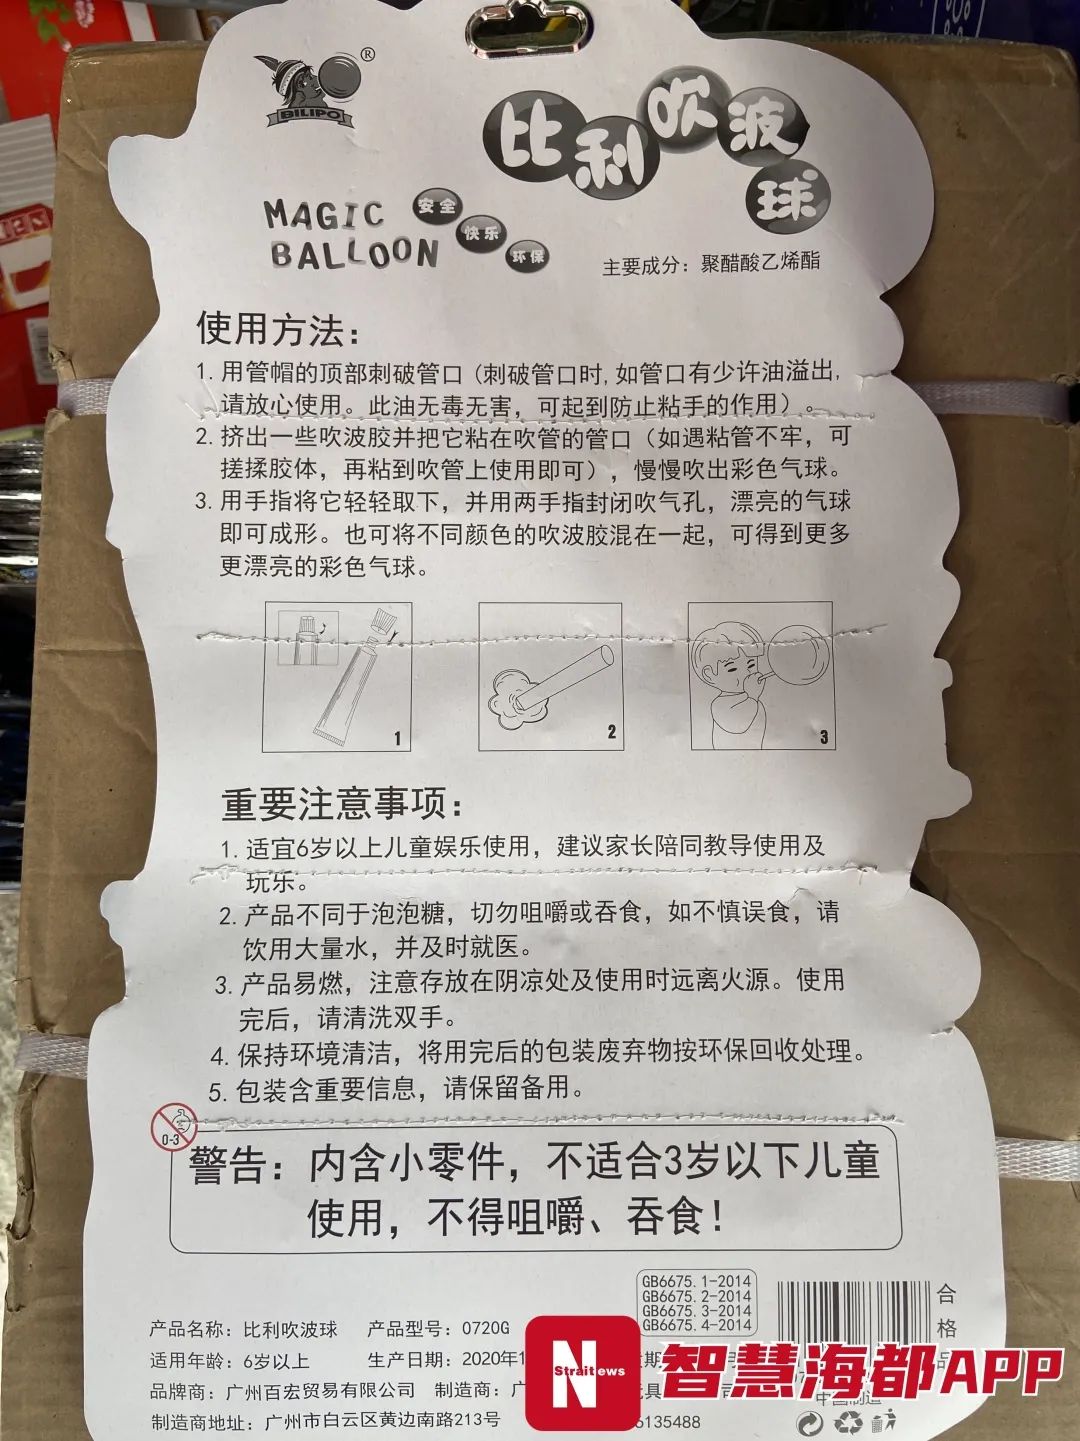 BILIPO ®
比利吹波球
MAGIC
BALLOON
安全
快乐
环保
主要成分：聚醋酸乙烯酯
使用方法：
1. 用管帽的顶部刺破管口（刺破管口时, 如管口有少许油溢出,
请放心使用。此油无毒无害，可起到防止粘手的作用）。
2. 挤出一些吹波胶并把它粘在吹管的管口（如遇粘管不牢，可
搓揉胶体，再粘到吹管上使用即可），慢慢吹出彩色气球。
3. 用手指将它轻轻取下，并用两手指封闭吹气孔，漂亮的气球
即可成形。也可将不同颜色的吹波胶混在一起，可得到更多
更漂亮的彩色气球。
1
2
3
重要注意事项：
1. 适宜6岁以上儿童娱乐使用，建议家长陪同教导使用及
玩乐。
2. 产品不同于泡泡糖，切勿咀嚼或吞食，如不慎误食，请
饮用大量水，并及时就医。
3. 产品易燃，注意存放在阴凉处及使用时远离火源。使用
完后，请清洗双手。
4. 保持环境清洁，将用完后的包装废弃物按环保回收处理。
5. 包装含重要信息，请保留备用。
0-3
警告：内含小零件，不适合3岁以下儿童
使用，不得咀嚼、吞食！
GB6675.1-2014
GB6675.2-2014
GB6675.3-2014
GB6675.4-2014
合格
产品名称：比利吹波球 产品型号：0720G
适用年龄：6岁以上 生产日期：2020年1
品牌商：广州百宏贸易有限公司 制造商：广
制造商地址：广州市白云区黄边南路213号
6135488
中国制造
N
Straitnews
智慧海都APP